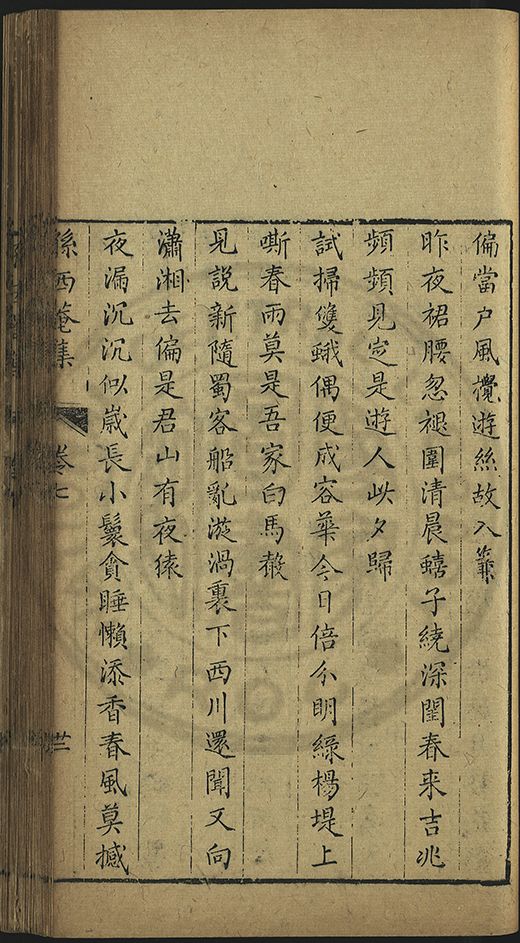 偏當户風攪遊絲故入簾
昨夜裙腰忽褪圍清晨蟢子繞深閨春来吉兆
頻頻見定是遊人此夕歸
試掃雙蛾偶便成容華今日倍分明綠楊堤上
嘶春雨莫是吾家白馬聲
見説新隨蜀客船亂漩渦裏下西川還聞又向
瀟湘去偏是君山有夜猿
夜漏沉沉似歲長小鬟貪睡懶添香春風莫撼
孫西菴集
卷七